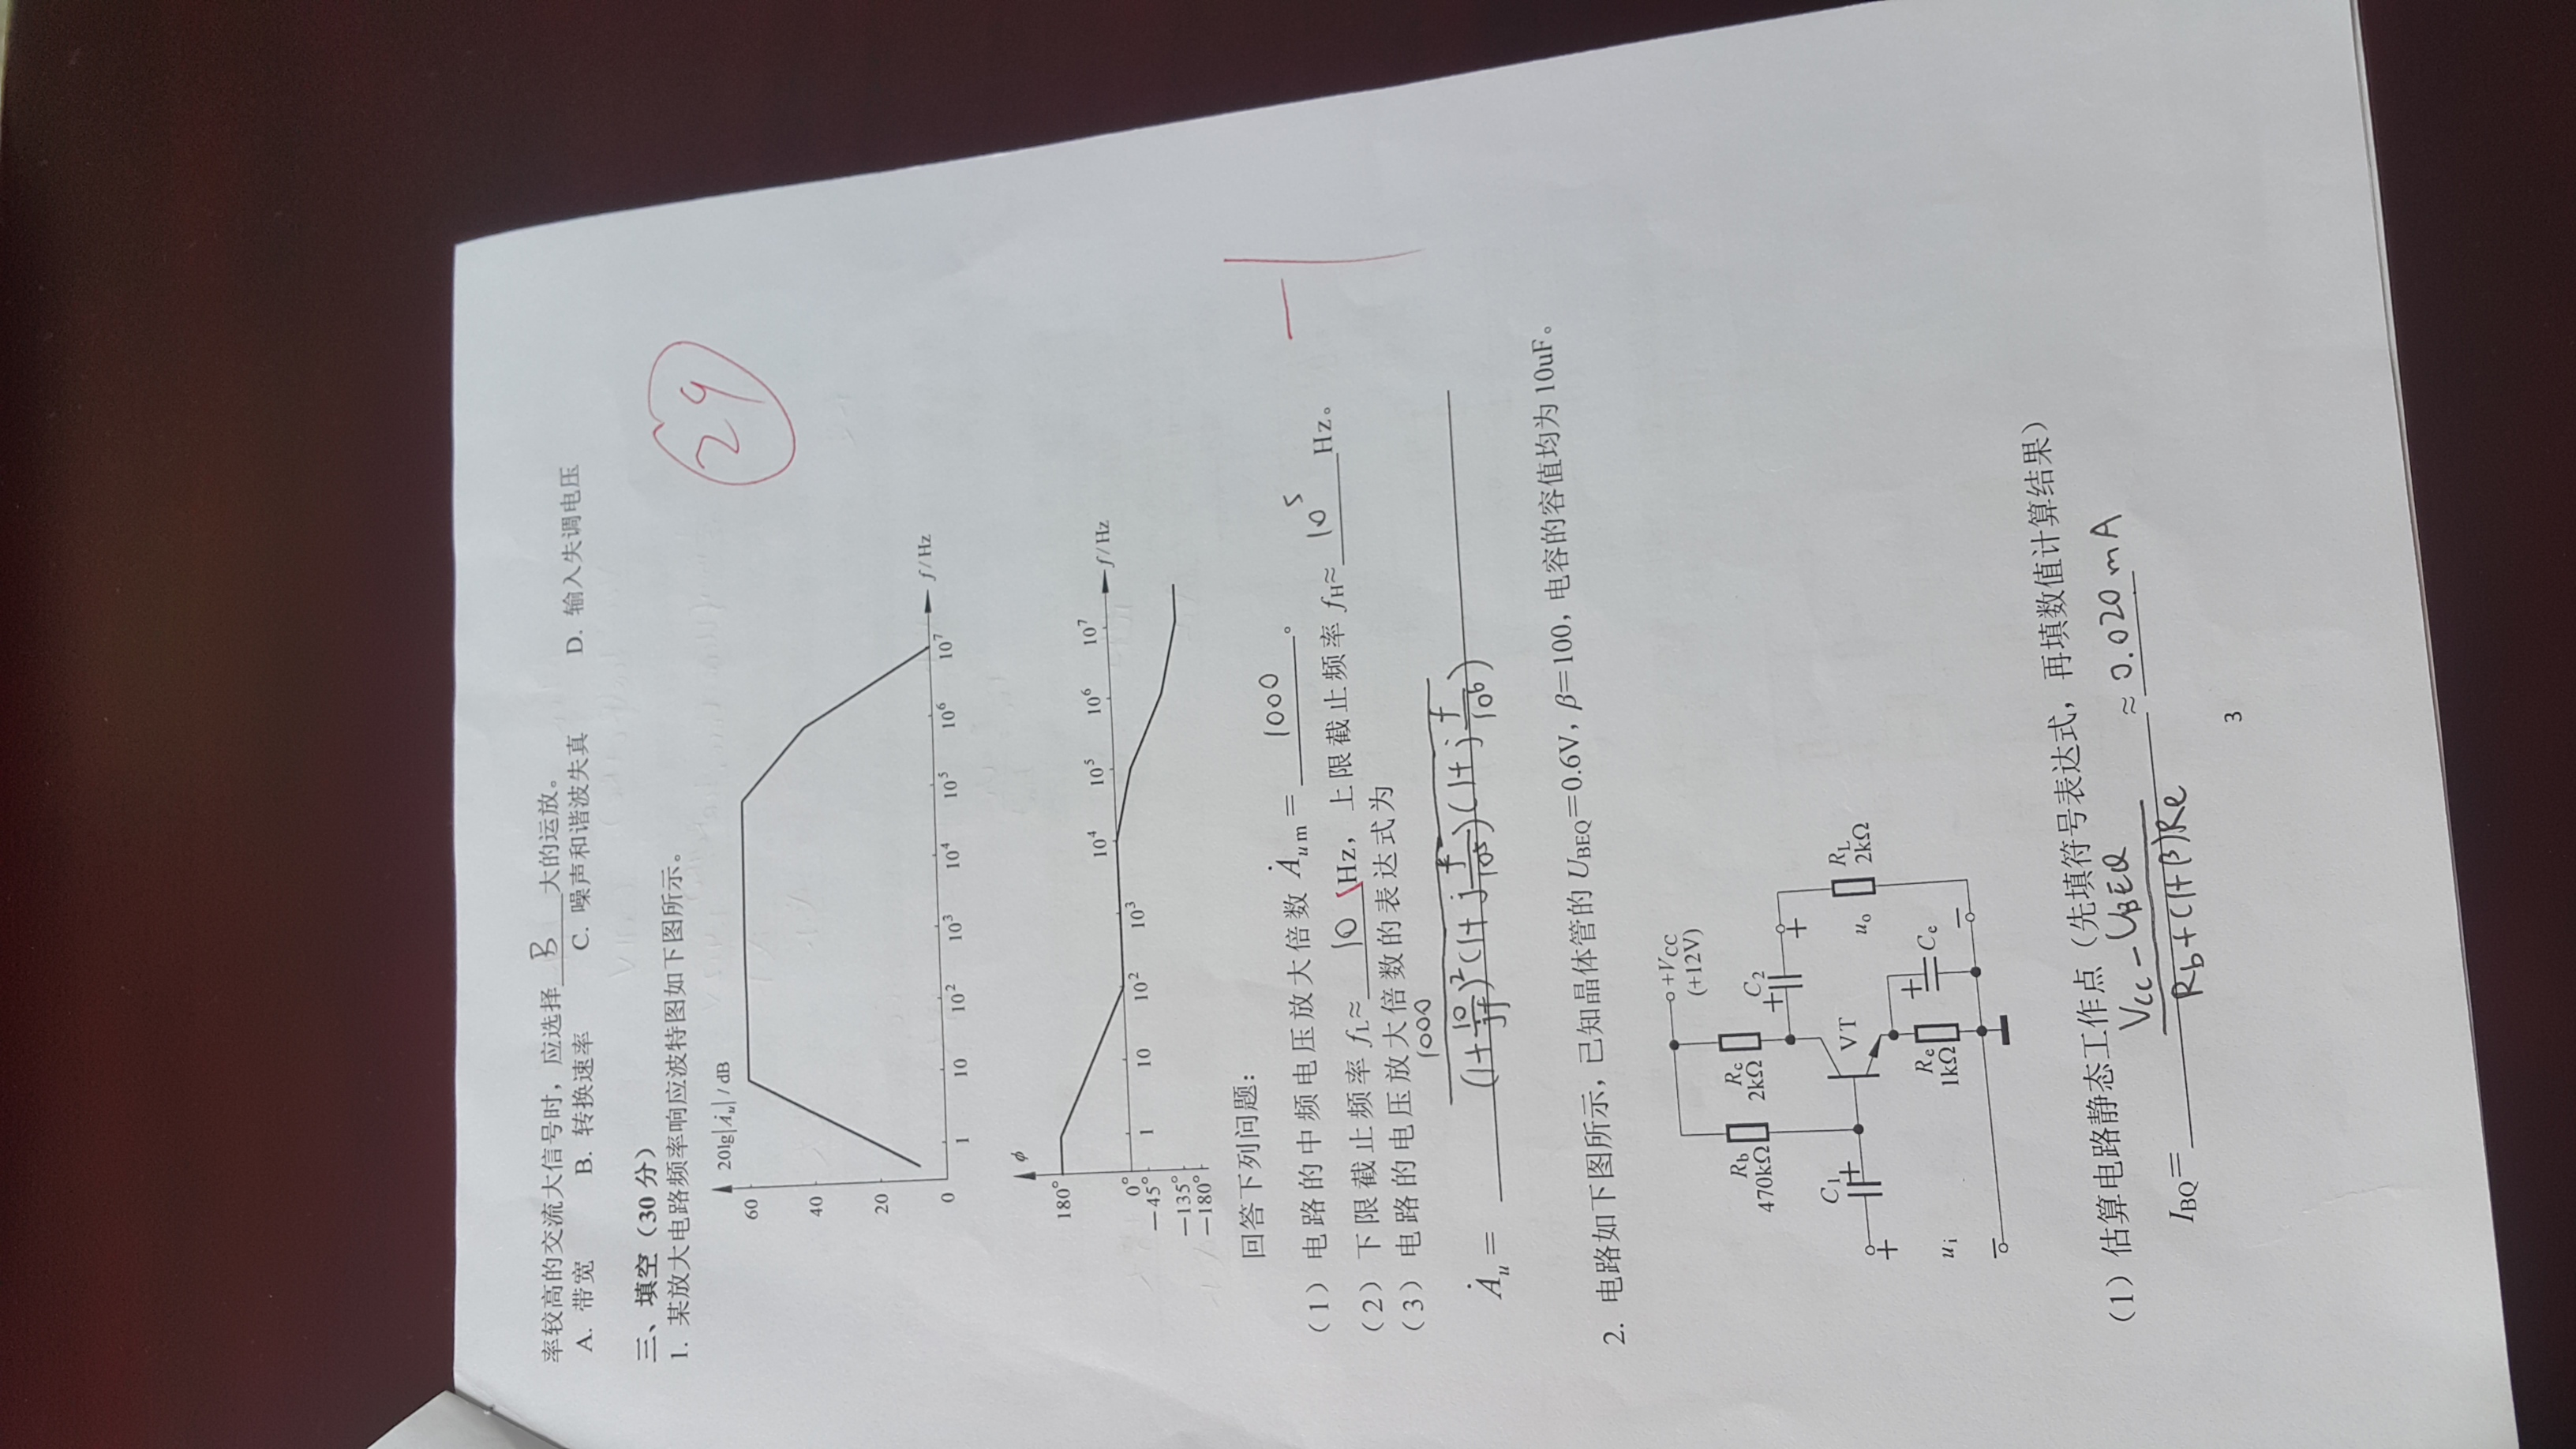 率较高的交流大信号时，应选择 B 大的运放。
A. 带宽 B. 转换速率 C. 噪声和谐波失真 D. 输入失调电压
三、填空（30 分）
1. 某放大电路频率响应波特图如下图所示。
29
20lg|Ȧu| / dB
60
40
20
0
1 10 10² 10³ 10⁴ 10⁵ 10⁶ 10⁷ f/Hz
ϕ
180°
10⁴ 10⁵ 10⁶ 10⁷ f/Hz
0°
1 10 10² 10³
—45°
—135°
—180°
回答下列问题：
（1）电路的中频电压放大倍数 Ȧum = 1000 。
（2）下限截止频率 fL≈ 10 Hz，上限截止频率 fH≈ 10⁵ Hz。
-1
（3）电路的电压放大倍数的表达式为
Ȧu = 1000 / (1+10/jf)²(1+j f/10⁵)(1+j f/10⁶)
2. 电路如下图所示，已知晶体管的 UBEQ=0.6V，β=100，电容的容值均为 10uF。
+VCC
(+12V)
Rb
470kΩ
Rc
2kΩ
C2
+
+
C1
+
VT
uo
RL
2kΩ
+
ui
Re
1kΩ
+
Ce
—
—
（1）估算电路静态工作点（先填符号表达式，再填数值计算结果）
IBQ= VCC-UBEQ / Rb+(1+β)Re ≈ 0.020 mA
3